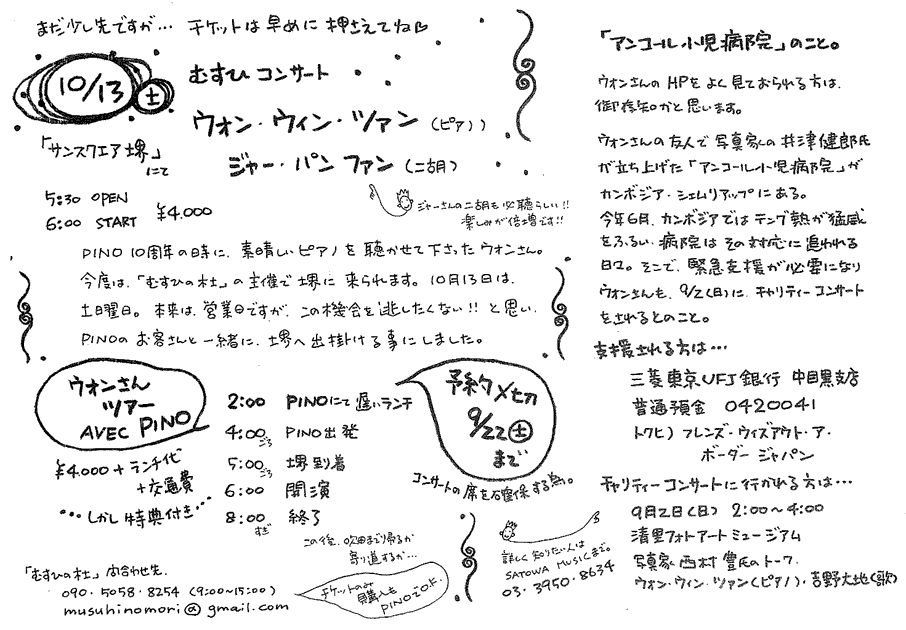 まだ少し先ですが… チケットは早めに押さえてね♡
10/13 土
むすひコンサート
ウォン・ウィン・ツァン (ピアノ)
「サンスクエア堺」にて
ジャー・パン ファン (二胡)
5:30 OPEN
6:00 START ¥4.000
ジャーさんの二胡も必聴らしい!!
楽しみが倍増です!!
PINO 10周年の時に、素晴しいピアノを聴かせて下さったウォンさん。
今度は、「むすひの杜」の主催で堺に来られます。10月13日は、
土曜日。本来は、営業日ですが、この機会を逃したくない!! と思い、
PINOのお客さんと一緒に、堺へ出掛ける事にしました。
ウォンさん
ツアー
AVEC PINO
¥4.000+ランチ代
+交通費
…しかし特典付き…
2:00 PINOにて遅いランチ
4:00ごろ PINO出発
5:00ごろ 堺到着
6:00 開演
8:00すぎ 終了
この後、吹田まで帰るか
寄り道するか…
予約〆切
9/22 土
まで
コンサートの席を確保する為。
「むすひの杜」問合わせ先.
090・5058・8254 (9:00~15:00)
musuhinomori@gmail.com
チケットのみ
購入も
PINOでOK.
詳しく知りたい人は
SATOWA MUSICまで。
03・3950・8634
「アンコール小児病院」のこと。
ウォンさんのHPをよく見ておられる方は、
御存知かと思います。
ウォンさんの友人で写真家の井津健郎氏
が立ち上げた「アンコール小児病院」が
カンボジア・シェムリアップにある。
今年6月、カンボジアではデング熱が猛威
をふるい、病院はその対応に追われる
日々。そこで、緊急支援が必要になり
ウォンさんも、9/2(日)に、チャリティーコンサート
をされるとのこと。
支援される方は…
三菱東京UFJ銀行 中目黒支店
普通預金 0420041
トクヒ) フレンズ・ウィズアウト・ア・
ボーダー ジャパン
チャリティーコンサートに行かれる方は…
9月2日(日) 2:00~4:00
清里フォトアートミュージアム
写真家 西村 豊氏のトーク.
ウォン・ウィン・ツァン(ピアノ)・吉野大地(歌)